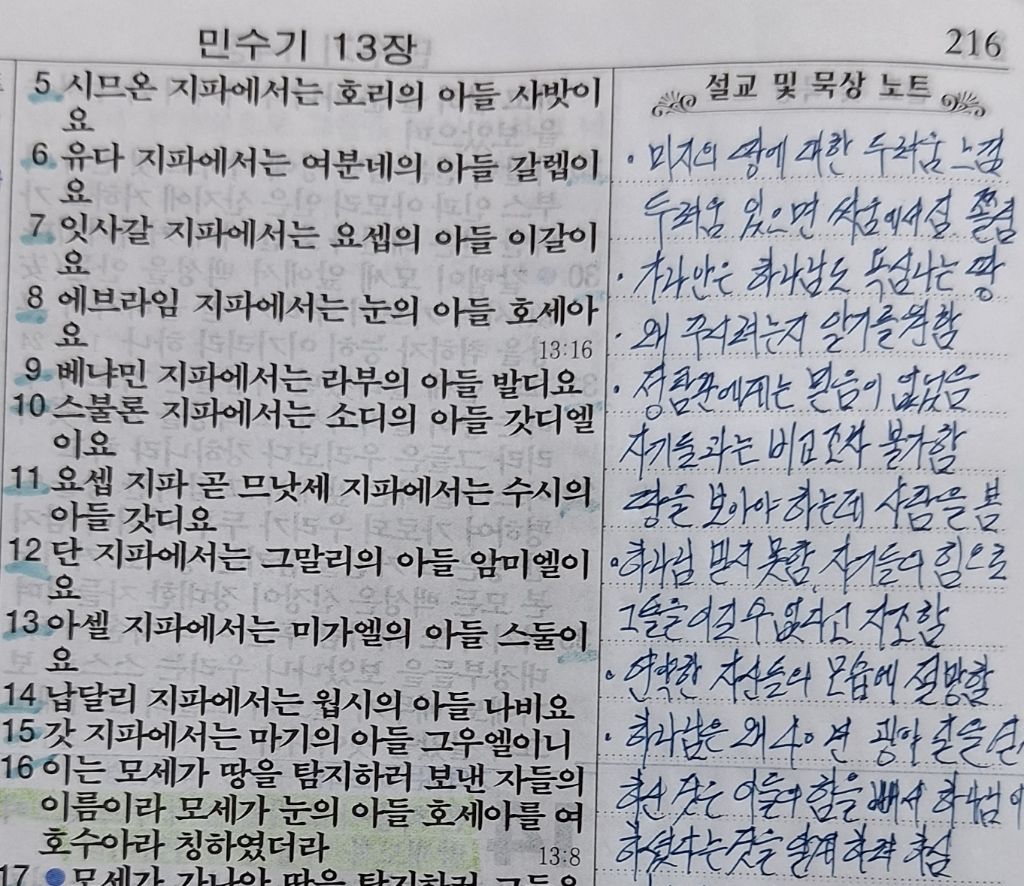 민수기 13장
216
5 시므온 지파에서는 호리의 아들 사밧이
요
6 유다 지파에서는 여분네의 아들 갈렙이
요
7 잇사갈 지파에서는 요셉의 아들 이갈이
요
8 에브라임 지파에서는 눈의 아들 호세아
요 13:16
9 베냐민 지파에서는 라부의 아들 발디요
10 스불론 지파에서는 소디의 아들 갓디엘
이요
11 요셉 지파 곧 므낫세 지파에서는 수시의
아들 갓디요
12 단 지파에서는 그말리의 아들 암미엘이
요
13 아셀 지파에서는 미가엘의 아들 스둘이
요
14 납달리 지파에서는 웝시의 아들 나비요
15 갓 지파에서는 마기의 아들 그우엘이니
16 이는 모세가 땅을 탐지하러 보낸 자들의
이름이라 모세가 눈의 아들 호세아를 여
호수아라 칭하였더라 13:8
17 모세가 가나안 땅을 탐지하러 그들을
설교 및 묵상 노트
• 미지의 땅에 대한 두려움 느낌
두려움 있으면 싸움에서 짐 쫄림
• 가나안은 하나님도 욕심나는 땅
• 왜 주시려는지 알기를 원함
• 정탐꾼에게는 믿음이 없었음
자기들과는 비교조차 불가함
땅을 보아야 하는데 사람을 봄
• 하나님 믿지 못함, 자기들의 힘으로
그들을 이길 수 없다고 자조함
• 연약한 자신들의 모습에 절망함
• 하나님은 왜 40년 광야 길을
하신 것은 이들의 힘을 빼서 하나님이
하셨다는 것을 알게 하려 하심